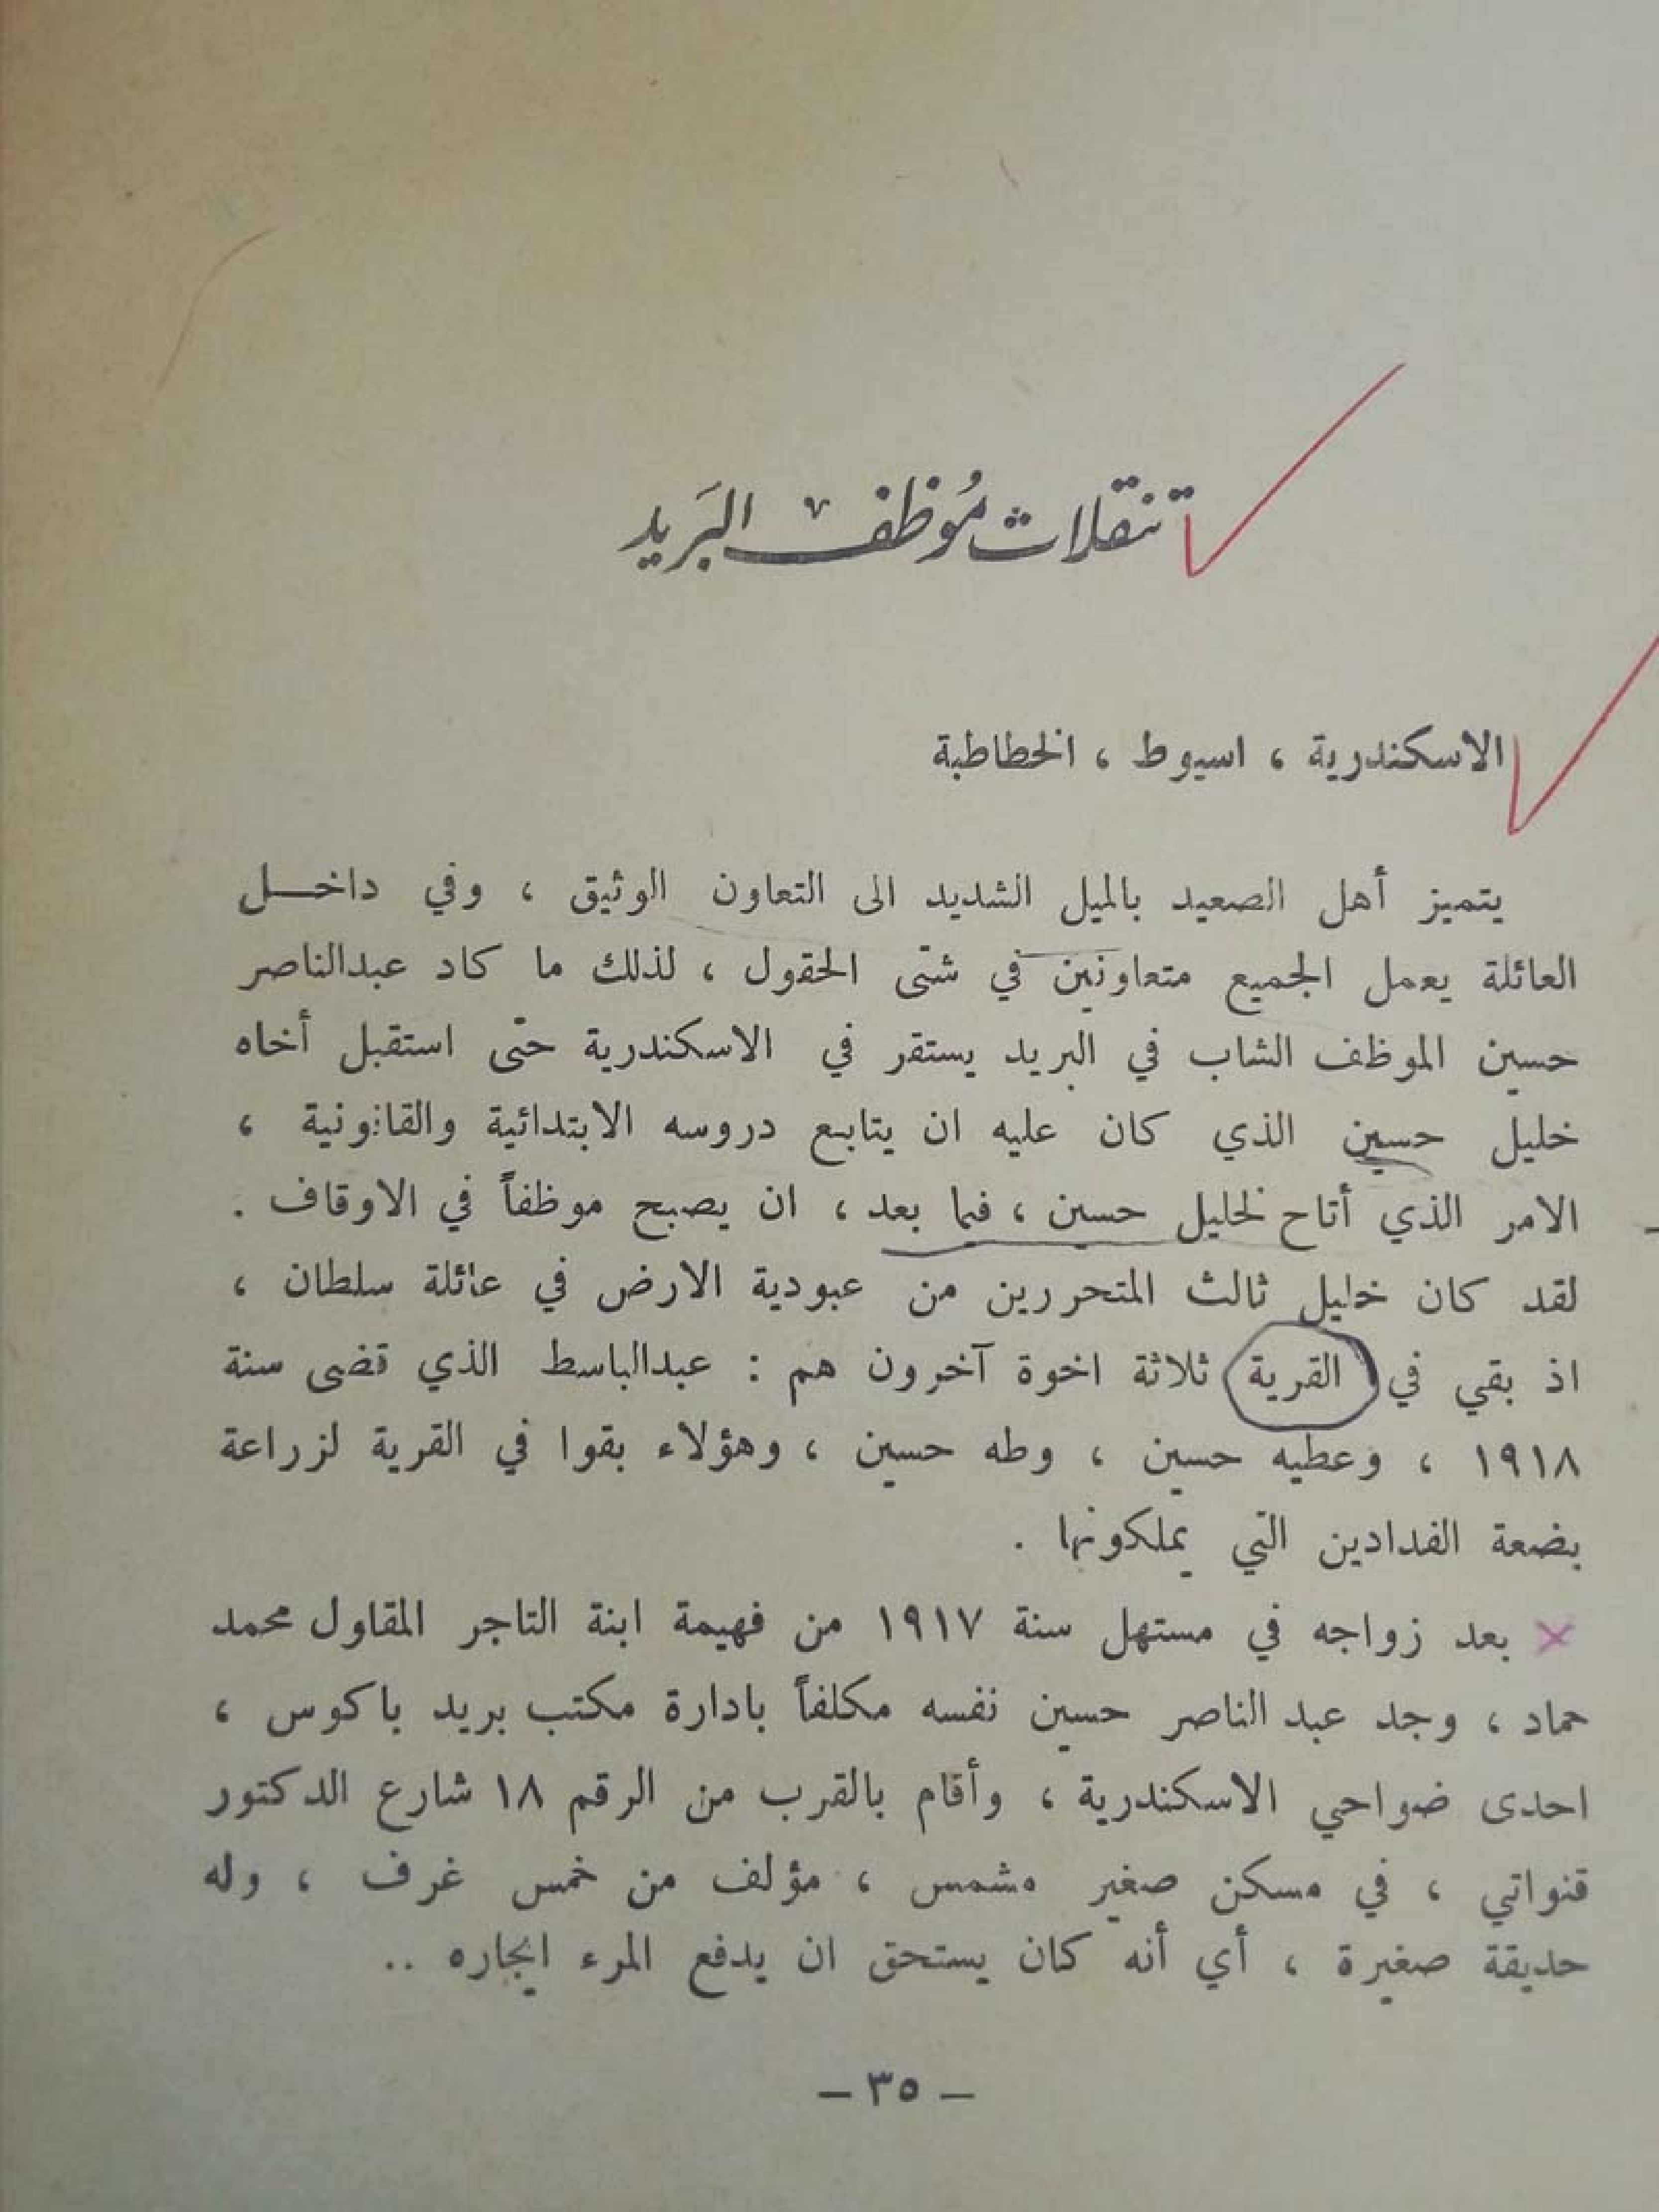 تنقلات مُوظف البَريد
الاسكندرية ، اسيوط ، الخطاطبة
يتميز أهل الصعيد بالميل الشديد الى التعاون الوثيق ، وفي داخـــل
العائلة يعمل الجميع متعاونين في شتى الحقول ، لذلك ما كاد عبدالناصر
حسين الموظف الشاب في البريد يستقر في الاسكندرية حتّى استقبل أخاه
خليل حسين الذي كان عليه ان يتابع دروسه الابتدائية والقانونية ،
الامر الذي أتاح لخليل حسين ، فيما بعد ، ان يصبح موظفاً في الاوقاف .
لقد كان خليل ثالث المتحررين من عبودية الارض في عائلة سلطان ،
اذ بقي في القرية ثلاثة اخوة آخرون هم : عبدالباسط الذي قضى سنة
١٩١٨ ، وعطيه حسين ، وطه حسين ، وهؤلاء بقوا في القرية لزراعة
بضعة الفدادين التي يملكونها .
بعد زواجه في مستهل سنة ١٩١٧ من فهيمة ابنة التاجر المقاول محمد
حماد ، وجد عبد الناصر حسين نفسه مكلفاً بادارة مكتب بريد باكوس ،
احدى ضواحي الاسكندرية ، وأقام بالقرب من الرقم ١٨ شارع الدكتور
قنواتي ، في مسكن صغير مشمس ، مؤلف من خمس غرف ، وله
حديقة صغيرة ، أي أنه كان يستحق ان يدفع المرء ايجاره ..
– ٣٥ –